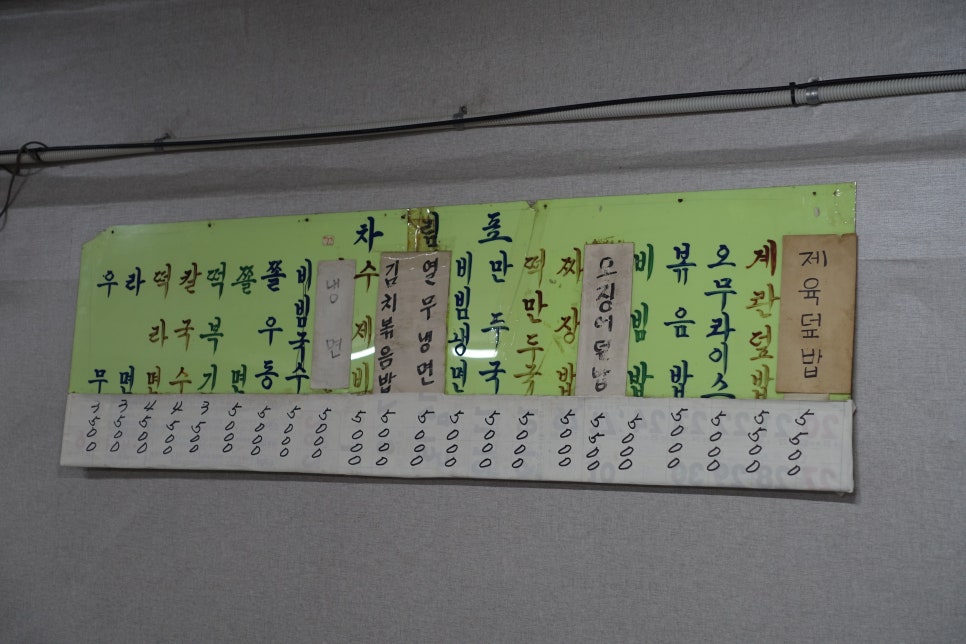 차림표
우무
라면
떡라면
칼국수
떡복기
쫄면
쫄우동
비빔국수
냉면
수제비
김치볶음밥
열무냉면
비빔냉면
만두국
떡만두국
짜장밥
오징어덮밥
비빔밥
뷰음밥
오무라이스
계란덮밥
제육덮밥
2500
3500
4500
4500
3500
5000
5000
5000
5000
5000
5000
5000
5000
5000
5000
5000
5500
5000
5000
5000
5500
5500